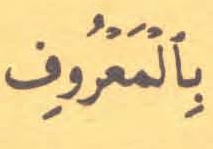 بِٱلْمَعْرُوفِ